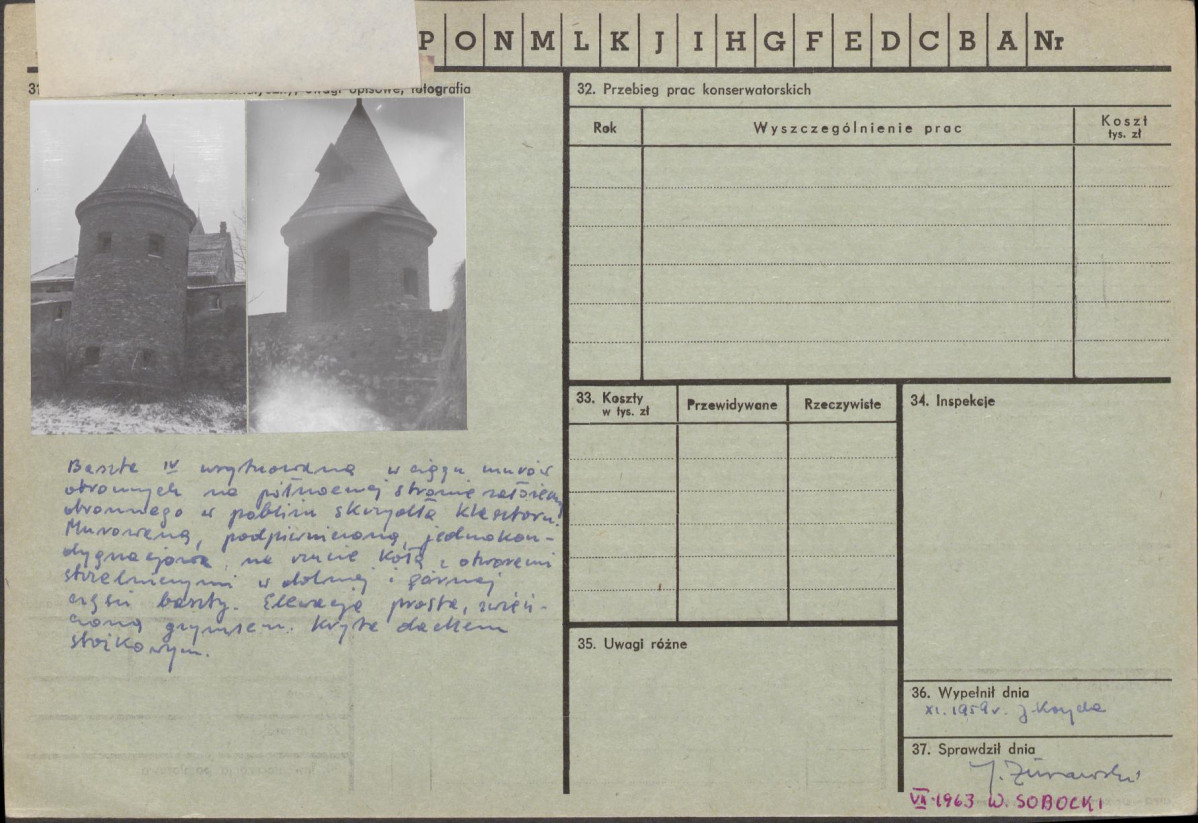 P O N M L K J I H G F E D C B A Nr
31. uwagi opisowe, fotografia
Baszta IV usytuowana w ciągu murów
obronnych na północnej stronie założenia
obronnego w pobliżu skrzydła klasztoru.
Murowana, podpiwniczona, jednokon-
dygnacjowa, na rzucie koła z otworami
strzelniczymi w dolnej i górnej
części baszty. Elewacja prosta, zwień-
czona gzymsem. Kryta dachem
stożkowym.
32. Przebieg prac konserwatorskich
Rok Wyszczególnienie prac Koszt
tys. zł
33. Koszty
w tys. zł
Przewidywane Rzeczywiste
34. Inspekcje
35. Uwagi różne
36. Wypełnił dnia
XI.1959r. J.
37. Sprawdził dnia
J. Żurawski
1963 W. SOBOCKI